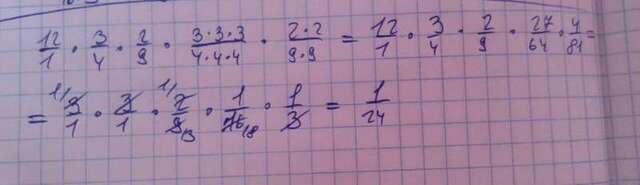 12/1 · 3/4 · 2/9 · 3·3·3/4·4·4 · 2·2/9·9 = 12/1 · 3/4 · 2/9 · 27/64 · 4/81 =
= 3/1 · 3/1 · 2/9 · 1/16 · 1/3 = 1/24